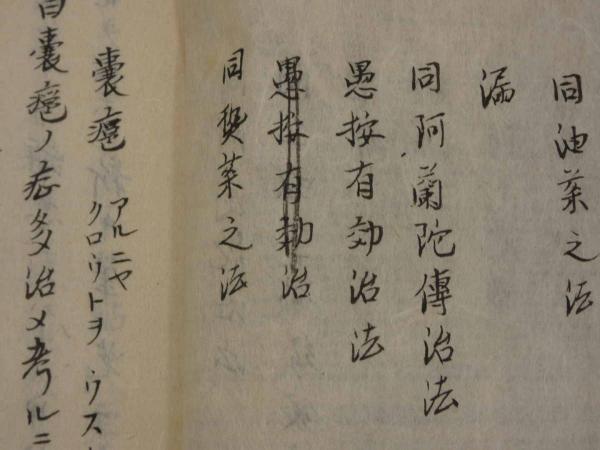 同油薬之法
漏
同阿蘭陀傳治法
愚按有効治法
愚按有効治
同煎薬之法
嚢癰
アルニヤ
クロウトヲウス
嚢癰ノ症多治メ考ルニ